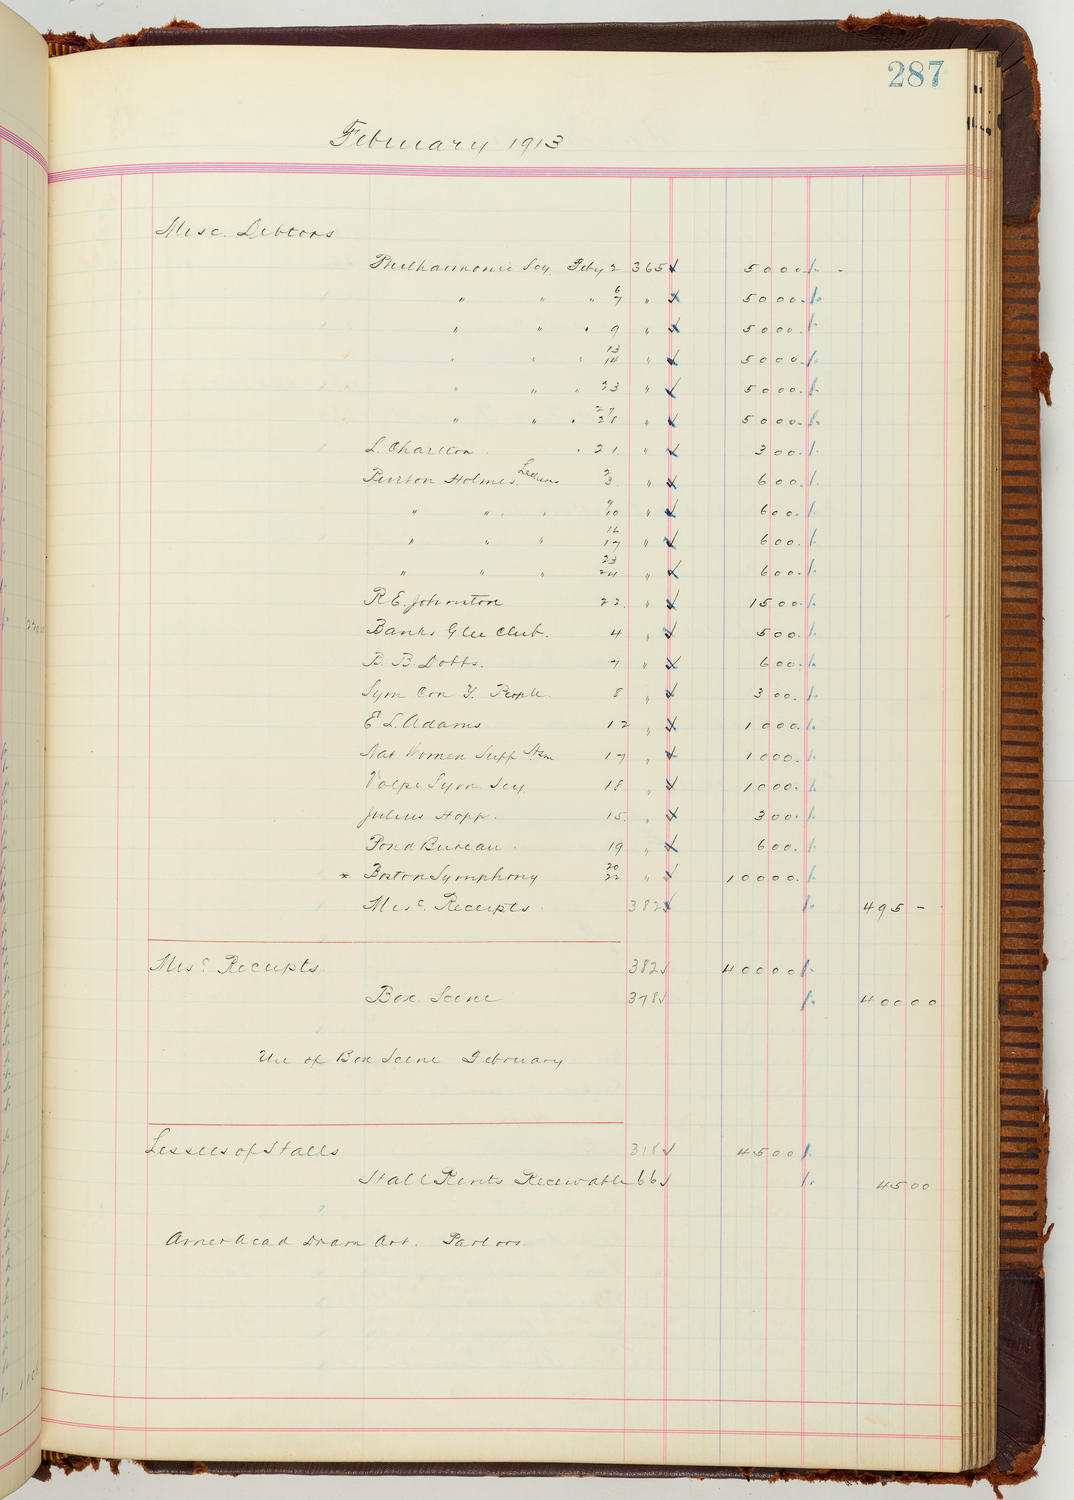 287
February 1913
Misc. Debtors
Philharmonic Socy. Feby 2 365 ✓ 5000 -
" " " 6/7 " 5000.
" " " 9 " 5000.
" " " 13/14 " 5000.
" " " 23 " 5000.
" " " 27/28 " 5000.
L. Charlton " 21. " 300.
Burton Holmes. Lectures 2/3 " 600.
" " " 9/10 " 600.
" " " 16/17 " 600.
" " " 23/24 " 600.
R E. Johnston 22. " 1500.
Banks Glee Club. 4 " 500.
B. B. Dobbs. 7 " 600.
Sym Con Y. People. 8 " 300.
E L. Adams 12 " 1000.
Nat Women Suff Assn 17 " 1000.
Volpe Sym. Socy 18 " 1000.
Julius Hopp. 15. " 300.
Pond Bureau. 19 " 600.
* Boston Symphony 20/22 " 10000.
Misc. Receipts 382 ✓ 495 -
Misc. Receipts 382 ✓ 40000
Box Scene 378 ✓ 40000
Use of Box Scene February
Lessees of Stalls 318 ✓ 4500
Stall Rents Receivable 66 ✓ 4500
Amer Acad Dram Art. Parlors.